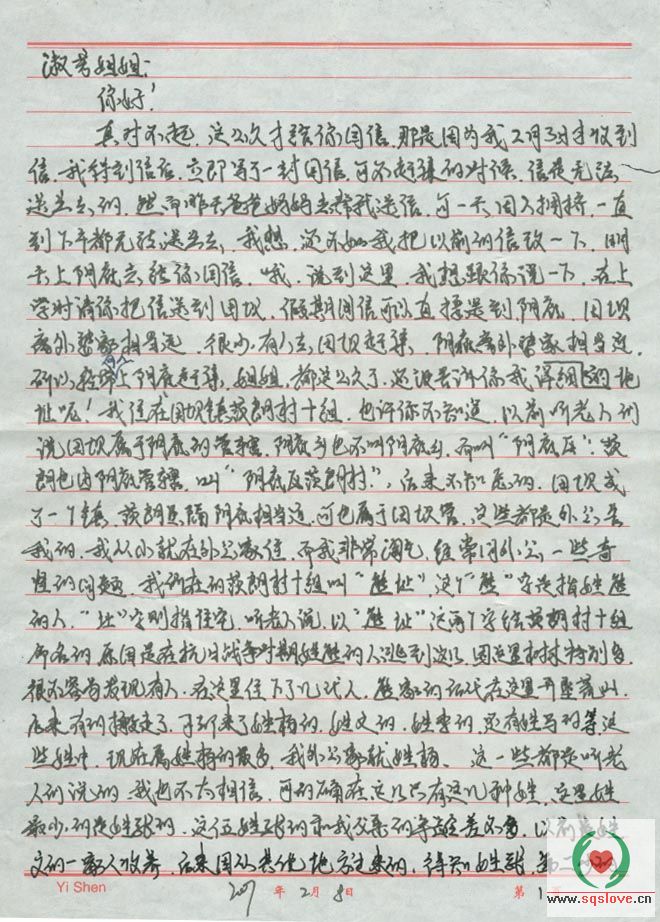 淑君姐姐:
你好!
真对不起,这么久才给你回信,那是因为我2月3才收到
信,我转到信后,立即写了一封回信,可不赶集的时候,信是无法
送出去的,然而昨天爸爸妈妈去帮我送信,可一天因人拥挤,一直
到下午都无法送出去,我想,还不如我把以前的信改一下,明
天上阴底去给你回信。哦,说到这里,我想跟你说一下,在上
学时请你把信送到田坝,假期回信可以直接送到阴底,田坝
离外婆家相当远,很少有人去田坝赶集,阴底离外婆家相当近,
所以上阴底赶集,姐姐,都这么久了,还没告诉你我详细的地
址呢!我住在田坝镇茨朗村十组,也许你不知道,以前听老人们
说田坝属于阴底的管辖,阴底乡也不叫阴底乡,而叫“阴底区”:茨
朗也由阴底管辖,叫“阴底区茨朗村”,后来不知怎的,田坝成
了一个镇,茨朗虽隔阴底相当近,可也属于田坝管,这些都是外公告
我的,我从小就在外公家住,而我非常淘气,经常问外公一些奇
怪的问题,我们在的茨朗村十组叫“熊址”,这个“熊”字是指姓熊
的人,“址”字则指住宅,听老人说,以“熊址”这两个字给茨朗村十组
命名的原因是在抗日战争时期姓熊的人逃到这儿,因这里树林特别多,
很不容易发现有人,在这里住下了几代人,熊家的后代在这里开垦荒山,
后来有的搬走了,于是来了姓杨的,姓文的,姓李的,还有姓马的等这
些姓中,现在属姓杨的最多,我外公家就姓杨、这一些都是听老
人们说的,我也不太相信,可的确在这儿只有这几种姓,这里姓
最少的是姓张的,这位姓张的和我父亲的年龄差不多,以前是姓
文的一家人收养,后来因从其他地方过来的,得知姓张,第二
Yi Shen
2007年2月8日
第1页
www.sqslove.cn